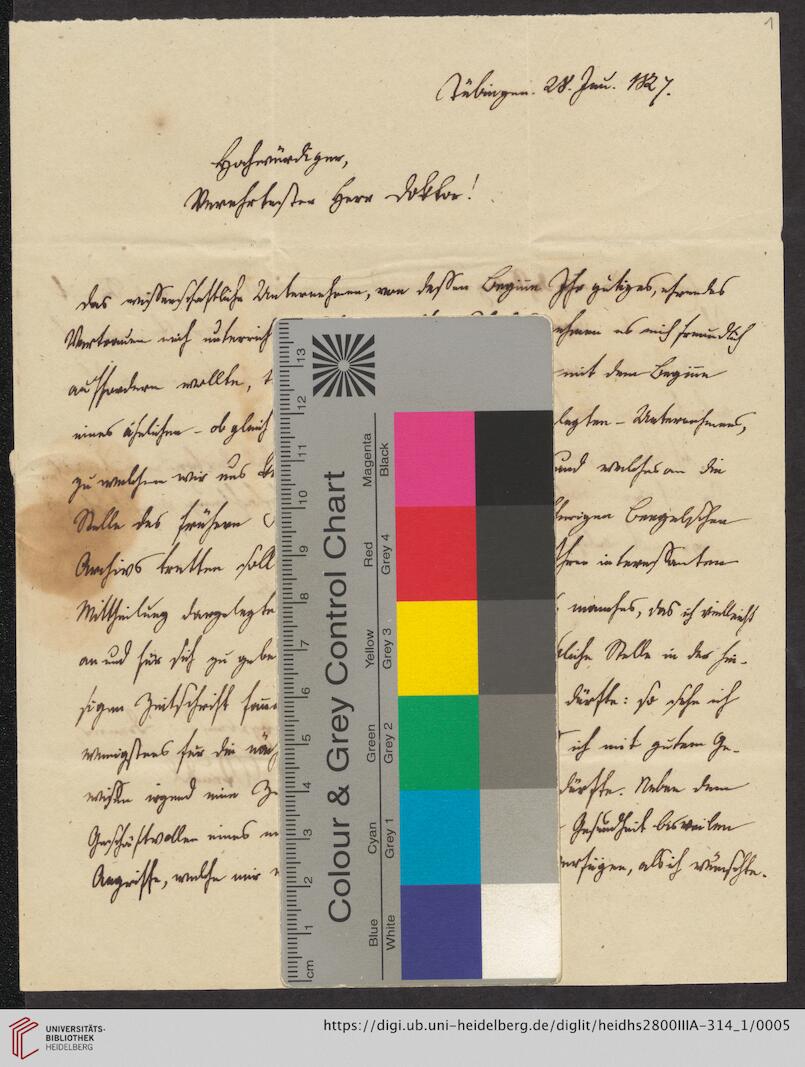 1
Tübingen. 28. Jan. 1827.
Hochwürdiger,
Verehrtester Herr Doktor!
Das wissenschaftliche Unternehmen, von dessen Beginne Ihr gütiges, ehrendes
Vertrauen mich unterrich ehmen es mich freundlich
auffordern wollte, mit dem Beginne
eines ähnlichen – obgleich legten – Unternehmens,
zu welchem wir uns und welches an die
Stelle des frühern herigen Bengelschen
Archivs tretten soll Ihren interessanten
Mittheilung dargelegte manches, das ich vielleicht
an und für sich zu gebe liche Stelle in der hie-
sigen Zeitschrift dürfte: so sehe ich
wenigstens für die näch ich mit gutem Ge-
wissen irgend eine dürfte. Neben dem
Geschäftvollen eines Gesundheit bisweilen
Angriffe, welche mir verfügen, als ich wünschte.
Colour & Grey Control Chart
Blue Cyan Green Yellow Red Magenta
White Grey 1 Grey 2 Grey 3 Grey 4 Black
cm 1 2 3 4 5 6 7 8 9 10 11 12 13
UNIVERSITÄTS-
BIBLIOTHEK
HEIDELBERG
https://digi.ub.uni-heidelberg.de/diglit/heidhs2800IIIA-314_1/0005